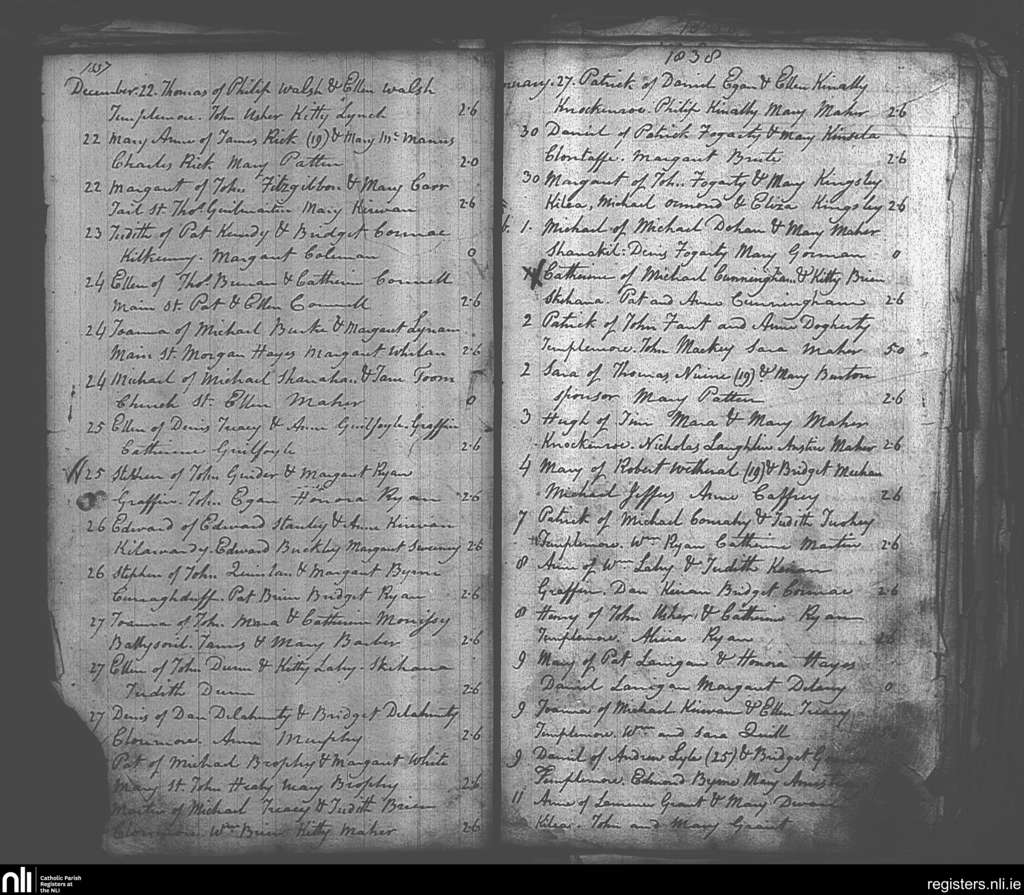 1837
December. 22. Thomas of Philip Walsh & Ellen Walsh
Templemore. John Usher Kitty Lynch 2.6
22 Mary Anne of James Rick (19) & Mary Mc Manus
Charles Rick Mary Patten 2.0
22 Margaret of John Fitzgibbon & Mary Carr
Jail St. Thos Guilmartin Mary Kirwan 2.6
23 Judith of Pat Kennedy & Bridget Cormac
Kilkenny. Margaret Coleman 0
24 Ellen of Thos. & Catherine Connell
Main St. Pat & Ellen Connell 2.6
24 Joanna of Michael Burke & Margaret Lynam
Main St. Morgan Hayes Margaret Whelan 2.6
24 Michael of Michael Shanahan & Jane
Church St. Ellen Maher 0
25 Ellen of Denis Treacy & Anne Guilfoyle. Graffin
Catherine Guilfoyle 2.6
25 Stephen of John & Margaret Ryan
Graffin. John Egan Honora Ryan 2.6
26 Edward of Edward Stanley & Anne Kirwan
Edward Buckley Margaret Sweeney 2.6
26 Stephen of John Quinlan & Margaret Byrne
Curraghduff. Pat Brien Bridget Ryan 2.6
27 Joanna of John Mara & Catherine Morrissy
James & Mary Barber 2.6
27 Ellen of John Dunn & Kitty Lahy. Skehana
Judith Dunn 2.6
27 Denis of Dan Delahunty & Bridget Delahunty
Clonmore. Anne Murphy 2.6
Pat of Michael Brophy & Margaret White
Mary St. John Healy Mary Brophy 2.6
Martin of Michael Treacy & Judith Brien
Clonmore. Wm Brien Kitty Maher 2.6
1838
nuary. 27. Patrick of Daniel Egan & Ellen Kinally
Knockinroe. Philip Kinally Mary Maher 2.6
30 Daniel of Patrick Fogarty & Mary Kinsela
Clontaffe. Margaret 2.6
30 Margaret of John Fogarty & Mary Kingsley
Kilea, Michael Ormond & Eliza Kingsley 2.6
1. Michael of Michael Dohan & Mary Maher
Shanakil: Denis Fogarty Mary Gorman 0
Catherine of Michael Cunningham & Kitty Brien
Skehana. Pat and Anne Cunningham 2.6
2 Patrick of John Fant and Anne Dogherty
Templemore. John Mackey Sara Maher 5.0
2 Sara of Thomas (19) & Mary Burton
sponsor Mary Patten 2.6
3 Hugh of Tim Mara & Mary Maher
Knockinroe. Nicholas Laughlin Maher 2.6
4 Mary of Robert Witheral (19) & Bridget Meehan
Michael Jeffers Anne Caffrey 2.6
7 Patrick of Michael & Judith Tuohey
Templemore. Wm Ryan Catherine Martin 2.6
8 Anne of Wm Lahy & Judith Kenan
Graffin. Dan Kenan Bridget Cormac 2.6
8 Henry of John Usher & Catherine Ryan
Templemore. Alicia Ryan 2.6
9 Mary of Pat Lanigan & Honora Hayes
Daniel Lanigan Margaret Delany 0
9 Joanna of Michael Kirwan & Ellen Treacy
Templemore. Wm and Sara Quill
9 Daniel of Andrew Lyle (25) & Bridget
Templemore. Edward Byrne Mary
11 Anne of Laurence Grant & Mary
Kilea. John and Mary Grant
nli Catholic Parish
Registers at
the NLI
registers.nli.ie